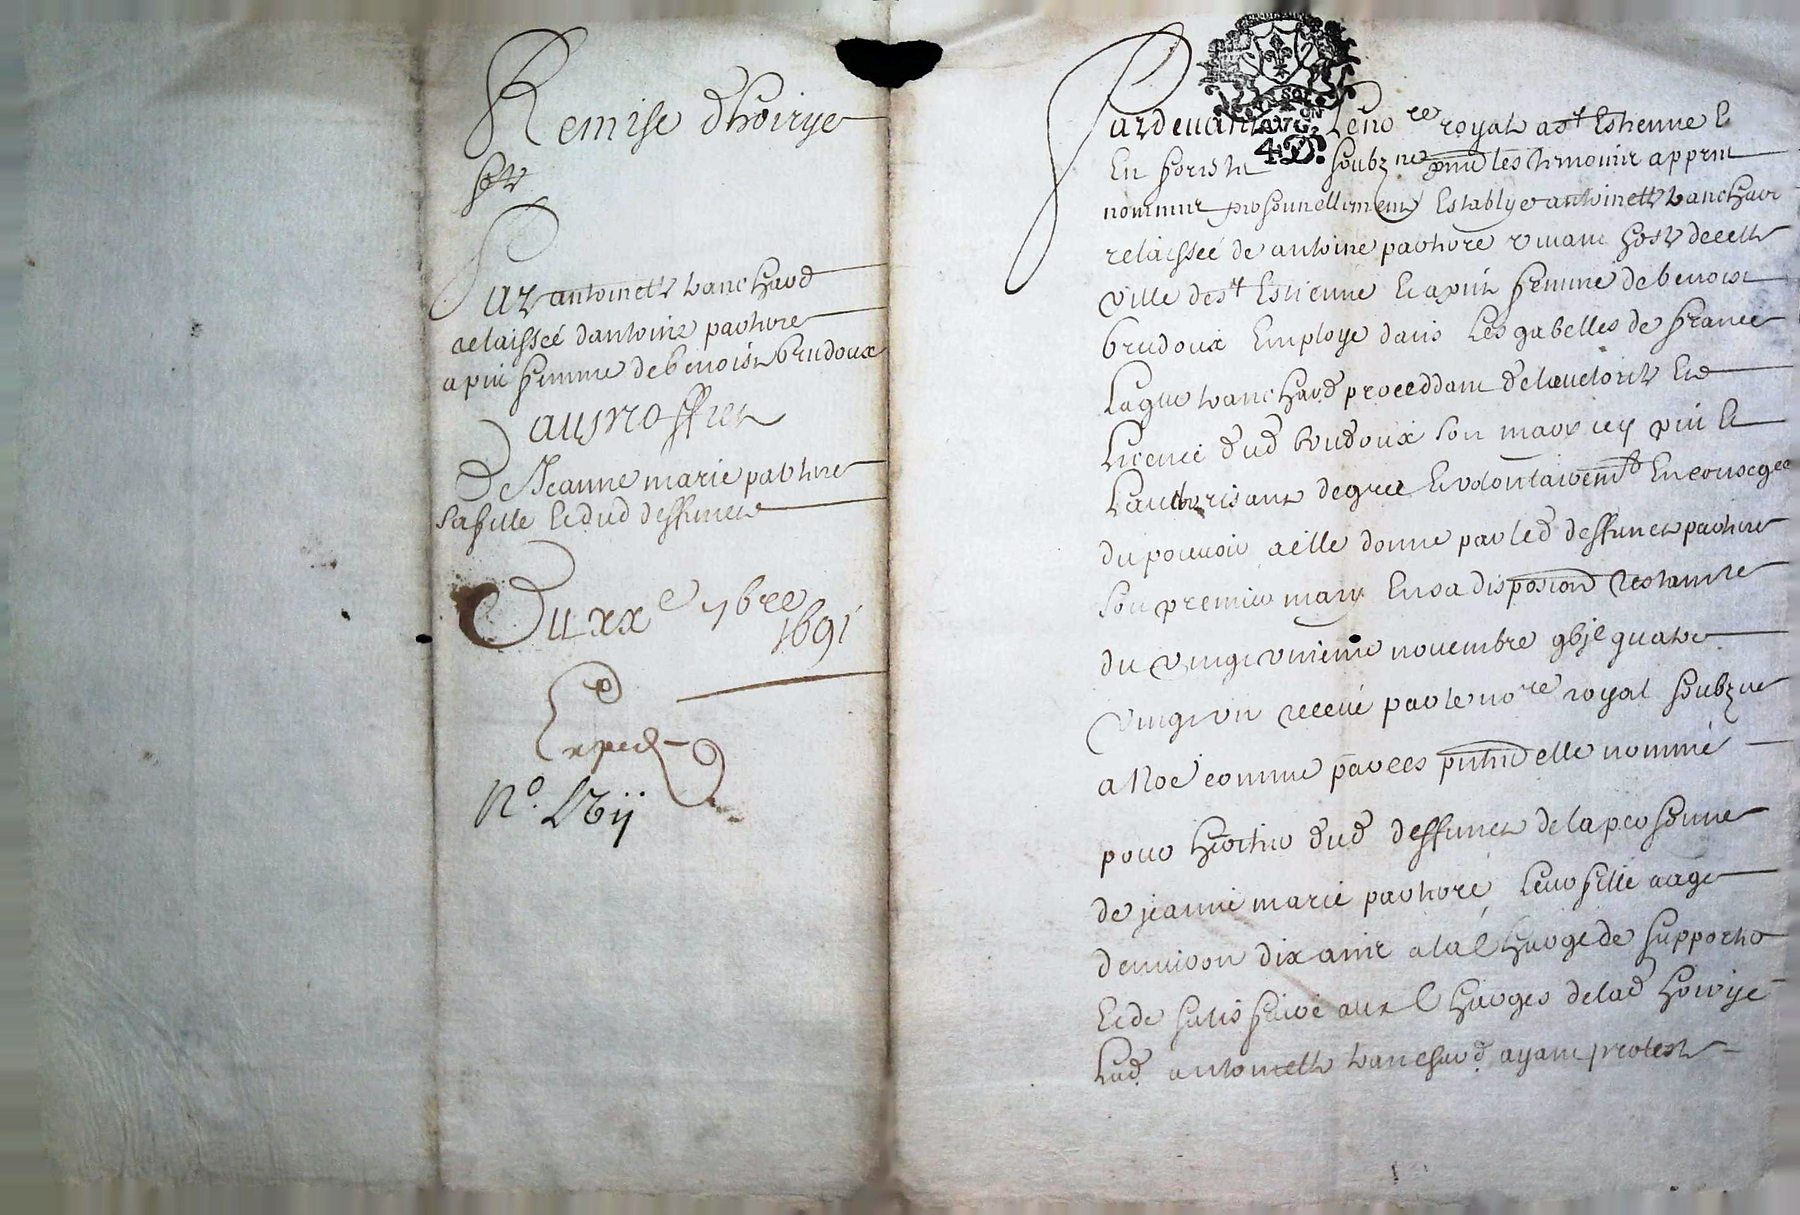 Remise dhoirye
Par antoinette tranchard
relaissée dantoine pauthre
a pnt femme de benoist brudoux
au proffict
De Jeanne marie pauthre
sa fille et dud deffunct
Du xxe 7bre
1691
Exped
No. Lviij
SOL
4 D.
Pardevant Le nore royal a st Estienne E
En forests soubzne pnts les tesmoins appres
nommez personnellement Establye antoinette tranchard
relaissée de antoine pauthre vivant hoste de cette
ville de st Estienne et a pnt femme de benoist
brudoux Employe dans Les gabelles de france
Laque tranchard proceddant de lauctorite et
licence dud brudoux son mary icy pnt et
Lauthorisant de gre et volontairemt En conseqce
du pouvoir a elle donne par led deffunct pauthre
son premier mary En sa disposion testamre
du vingt uniesme novembre gbje quatre
vingt un receue par le nore royal soubzne
a Noe comme par ces pntes elle nomme
pour heritier dud deffunct de la personne
de jeanne marie pauthre leur fille aage
denviron dix ans a la charge de supporter
Et de satisfaire aux charges de lad hoirye
Lad. antoinette tranchard. ayant proteste